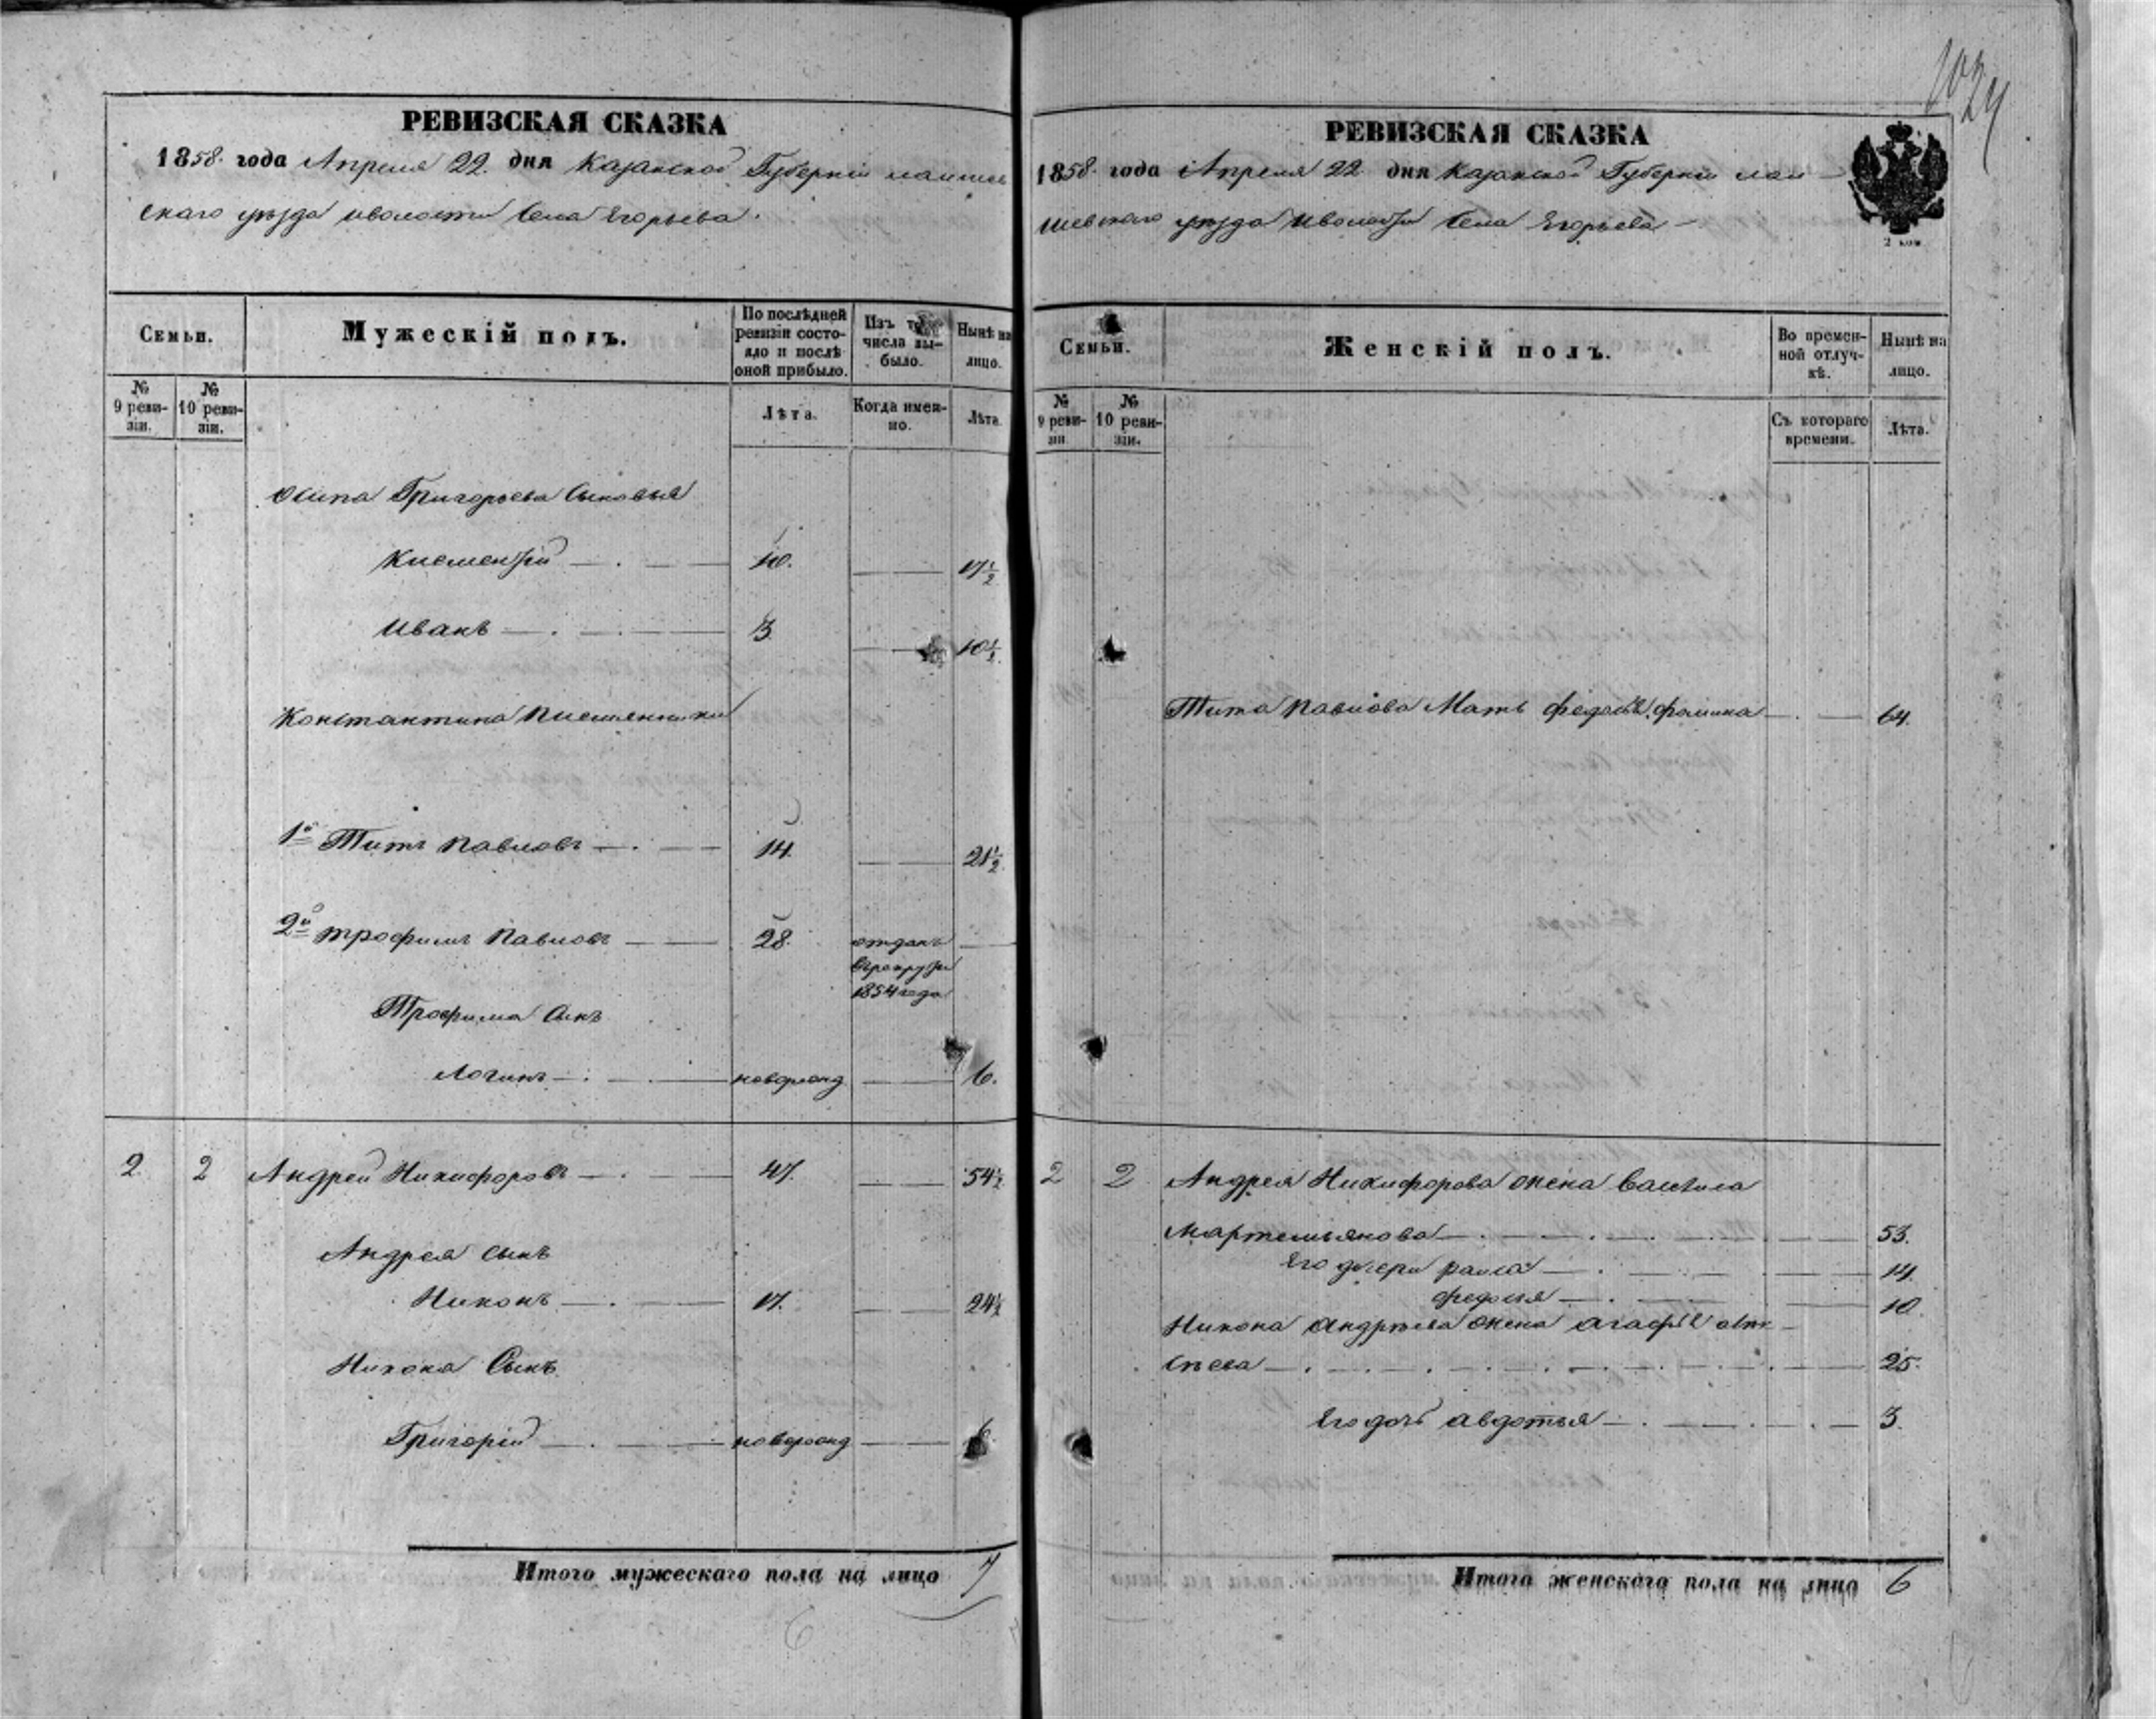 1024
РЕВИЗСКАЯ СКАЗКА
1858 года Апреля 22 дня Казанской Губерніи Лаишев
скаго уѣзда и волости Села Егорьева.
Семьи.
Мужескій полъ.
По послѣдней ревизіи состояло и послѣ оной прибыло.
Изъ того числа выбыло.
Нынѣ на лицо.
№ 9 ревизіи.
№ 10 ревизіи.
Лѣта.
Когда именно.
Лѣта.
Осипа Григорьева Сыновья
Клементій 10. 17½
Иванъ 3 10½
Константина Племянники
1й Титъ Павловъ 14. 21½
2й Трофимъ Павловъ 28. отданъ
въ рекруты
1854 года
Трофима Сынъ
Логинъ новорожд 6.
2 2 Андрей Никифоровъ 47. 54½
Андрея сынъ
Никонъ 17. 24½
Никона Сынъ
Григорій новорожд 6
Итого мужескаго пола на лицо 7
6
РЕВИЗСКАЯ СКАЗКА
1858 года Апреля 22 дня Казанской Губерніи Лаи
шевскаго уѣзда и волости Села Егорьева
2 коп
Семьи.
Женскій полъ.
Во временной отлучкѣ.
Нынѣ на лицо.
№ 9 ревизіи
№ 10 ревизіи.
Съ котораго времени.
Лѣта.
Тита Павлова Мать Федосья Фомина 64.
2 2 Андрея Никифорова жена Василиса
Мартемьянова 53.
Его дочери 14
Федосья 10.
Никона Андрѣева жена Агафья Алек
сѣева 25.
Его дочь Авдотья 3.
Итого женскаго пола на лицо 6